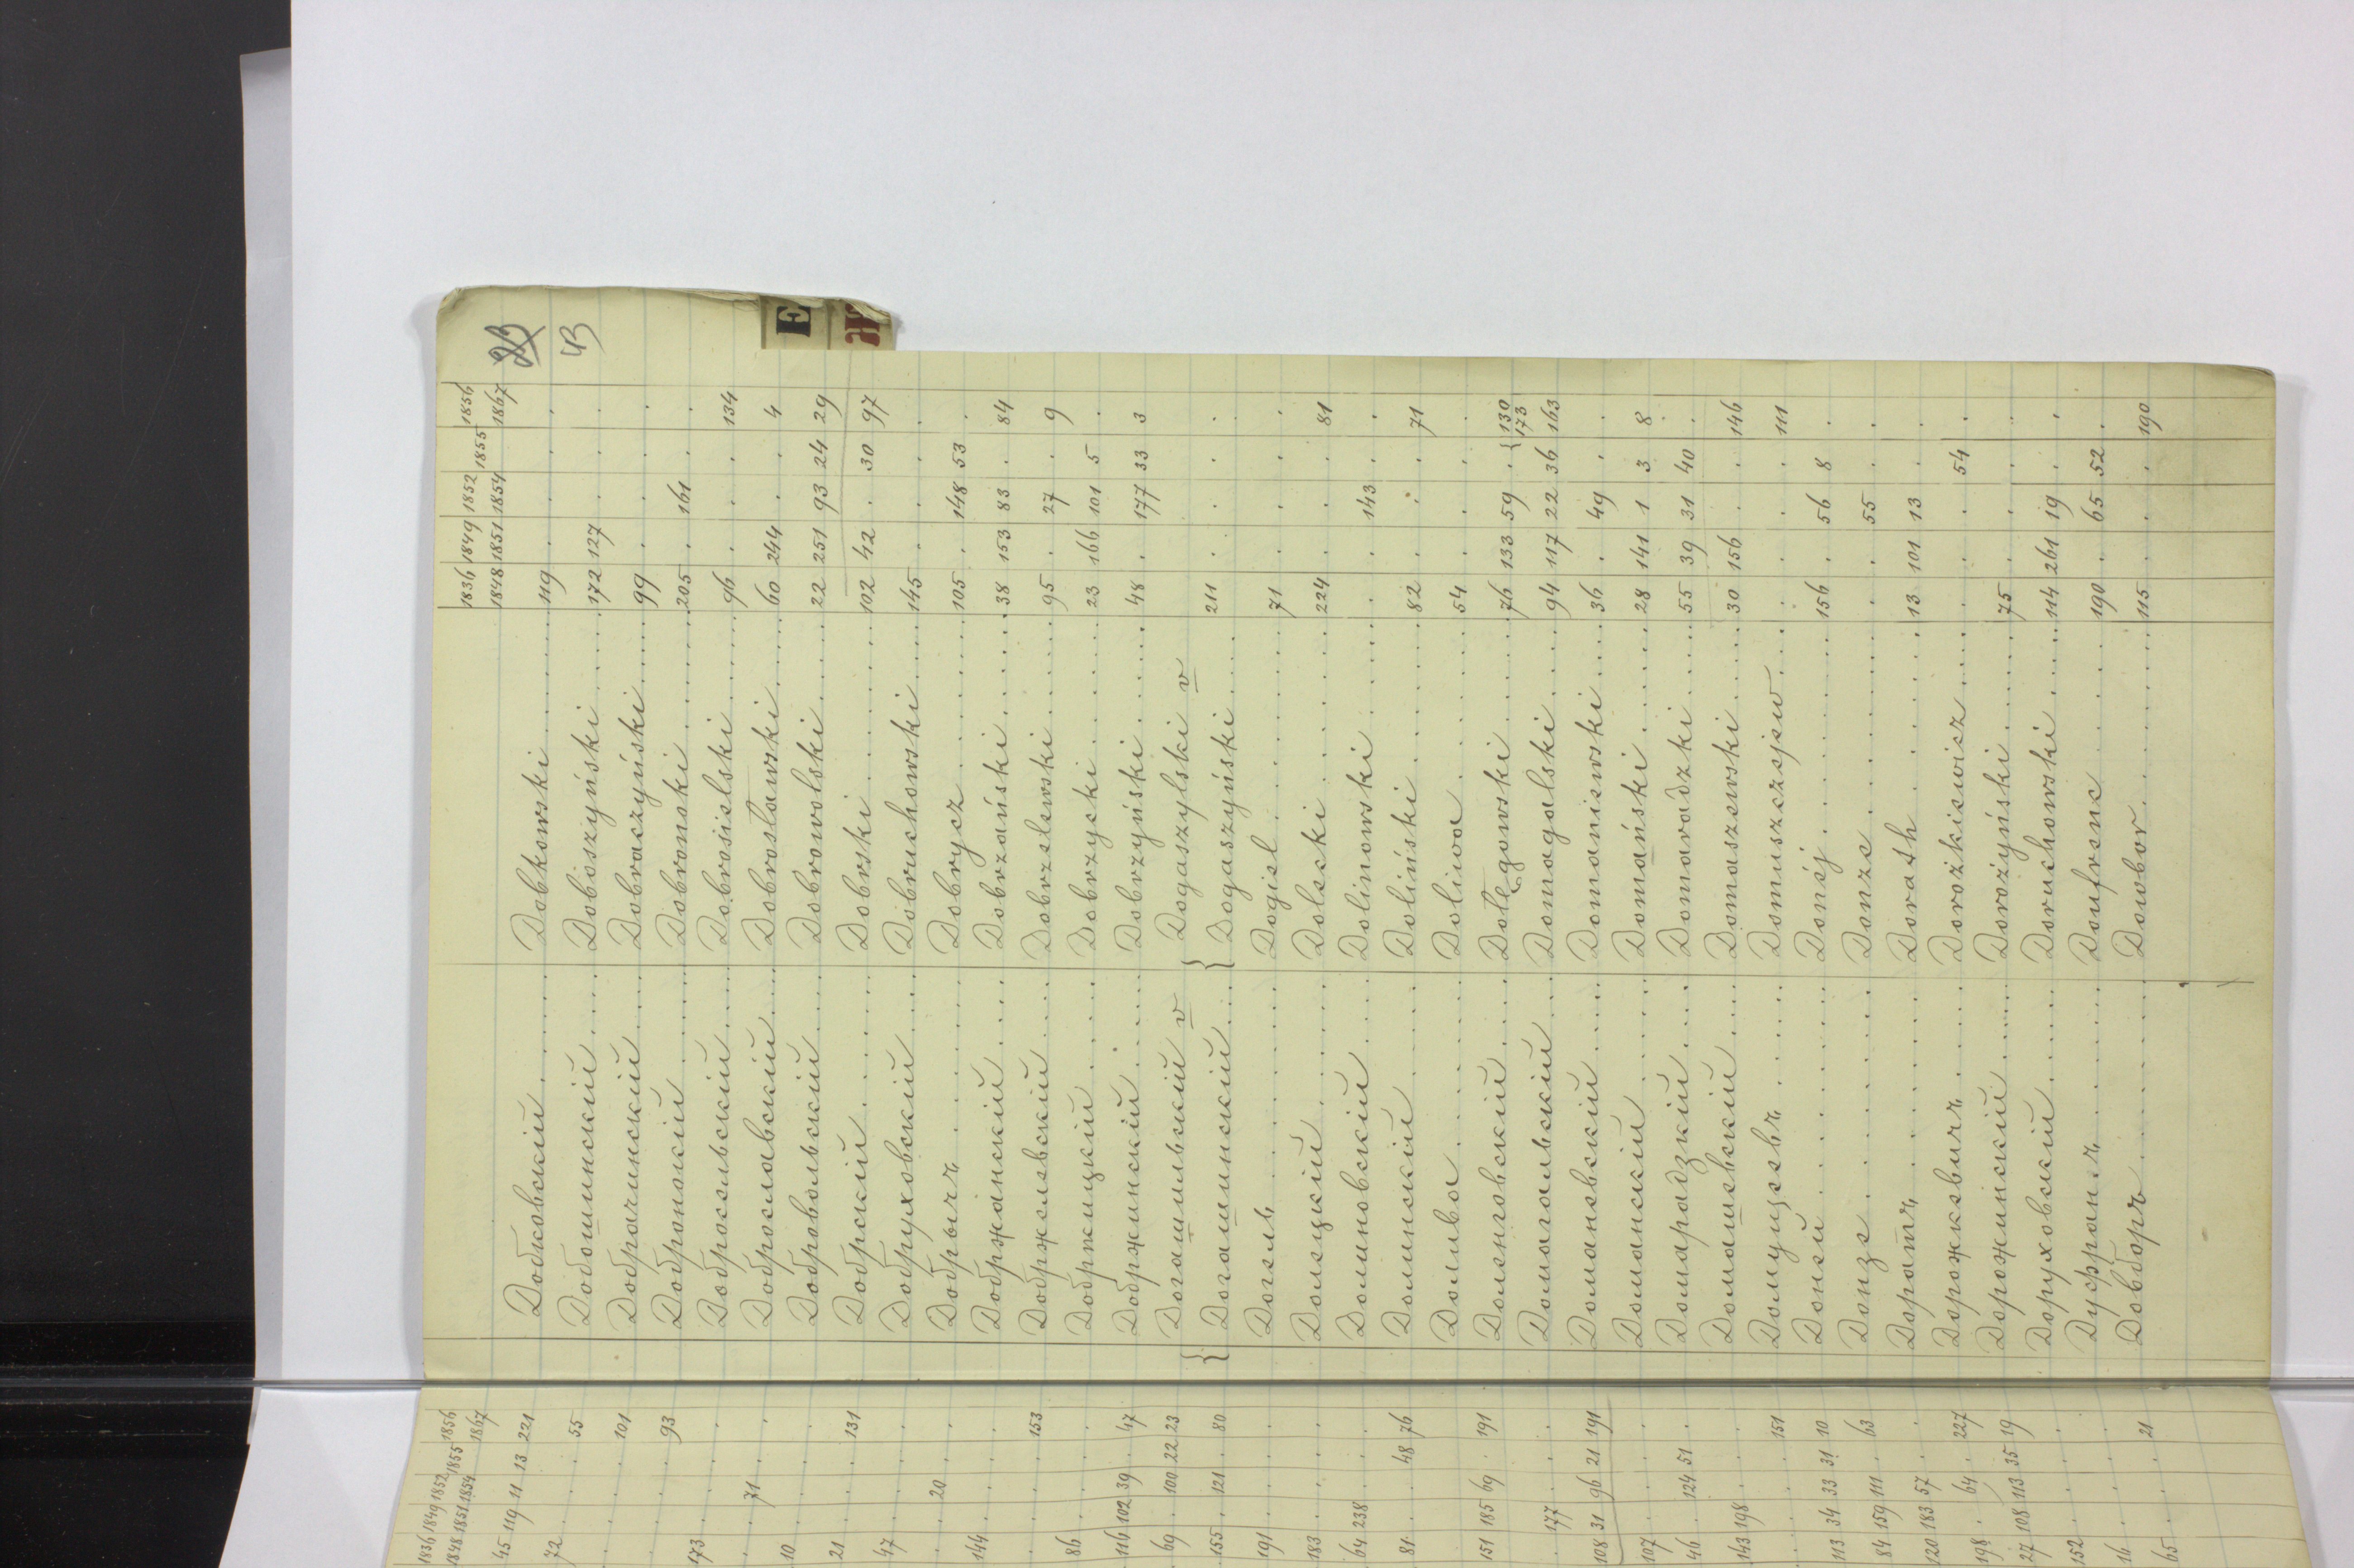 23
43
1836 1849 1852 1855 1856
1848 1851 1854 1867
Добковскій Dobkowski 119 . . . .
Добошинскій Doboszyński 172 127 . . .
Доброчинскій Dobraczyński 99 . . . .
Добронскій Dobronski 205 . 161 . .
Добросельскій Dobrosielski 96 . . . 134
Доброславскій Dobrosławski 60 244 . . 4
Добровольскій Dobrowolski 22 251 93 24 29
Добрскій Dobrski 102 42 . 30 97
Добруховскій Dobruchowski 145 . . . .
Добрычъ Dobrycz 105 . 148 53 .
Добржанскій Dobrzański 38 153 83 . 84
Добржелевскій Dobrzelewski 95 . 27 . 9
Добржицкій Dobrzycki 23 166 101 5 .
Добржинскій Dobrzyński 48 . 177 33 3
{ Догашильскій v { Dogaszylski v
Догашинскій Dogaszyński 211 . . . .
Догель Dogiel 71 . . . .
Долецкій Dolecki 224 . . . 81
Долиновскій Dolinowski . . 143 . .
Долинскій Doliński 82 . . . 71
Долива Doliwa 54 . . . .
Доленговскій Dolęgowski 76 133 59 . { 130 173
Домогальскій Domagalski 94 117 22 36 163
Доманевскій Domaniewski 36 . 49 . .
Доманскій Domański 28 141 1 3 8
Домарадзкій Domaradzki 55 39 31 40 .
Домашевскій Domaszewski 30 156 . . 146
Домущевъ Domuszczejew . . . . 111
Доней Doniéj 156 . 56 8 .
Донзе Donze . . 55 . .
Доратъ Dorath 13 101 13 . .
Дорожкевичъ Dorożkiewicz . . . 54 .
Дорожинскій Dorożyński 75 . . . .
Доруховскій Doruchowski 114 261 19 . .
Дуфранъ Doufrene 190 . 65 52 .
Довборъ Dowbor 115 . . . 190
E
Ж
1836 1849 1852 1855 1856
1848 1851 1854 1867
45 119 11 13 221
72 . . . 55
. . . . 101
. . . . 93
173 . . . .
. . 71 . .
10 . . . .
21 . . . 131
47 . . . .
. . 20 . .
144 . . . .
. . . . 153
86 . . . .
116 102 39 . 47
69 . 100 22 23
155 . 121 . 80
191 . . . .
183 . . . .
64 238 . . .
81 . . 48 76
151 185 69 . 191
. 177 . . .
108 31 96 21 191
107 . . . .
46 . 124 51 .
143 198 . . .
. . . . 151
113 34 33 31 10
84 159 111 . 63
120 183 57 . .
198 . 64 . 227
27 108 113 35 19
152 . . . .
16 . . . .
65 . . . 21